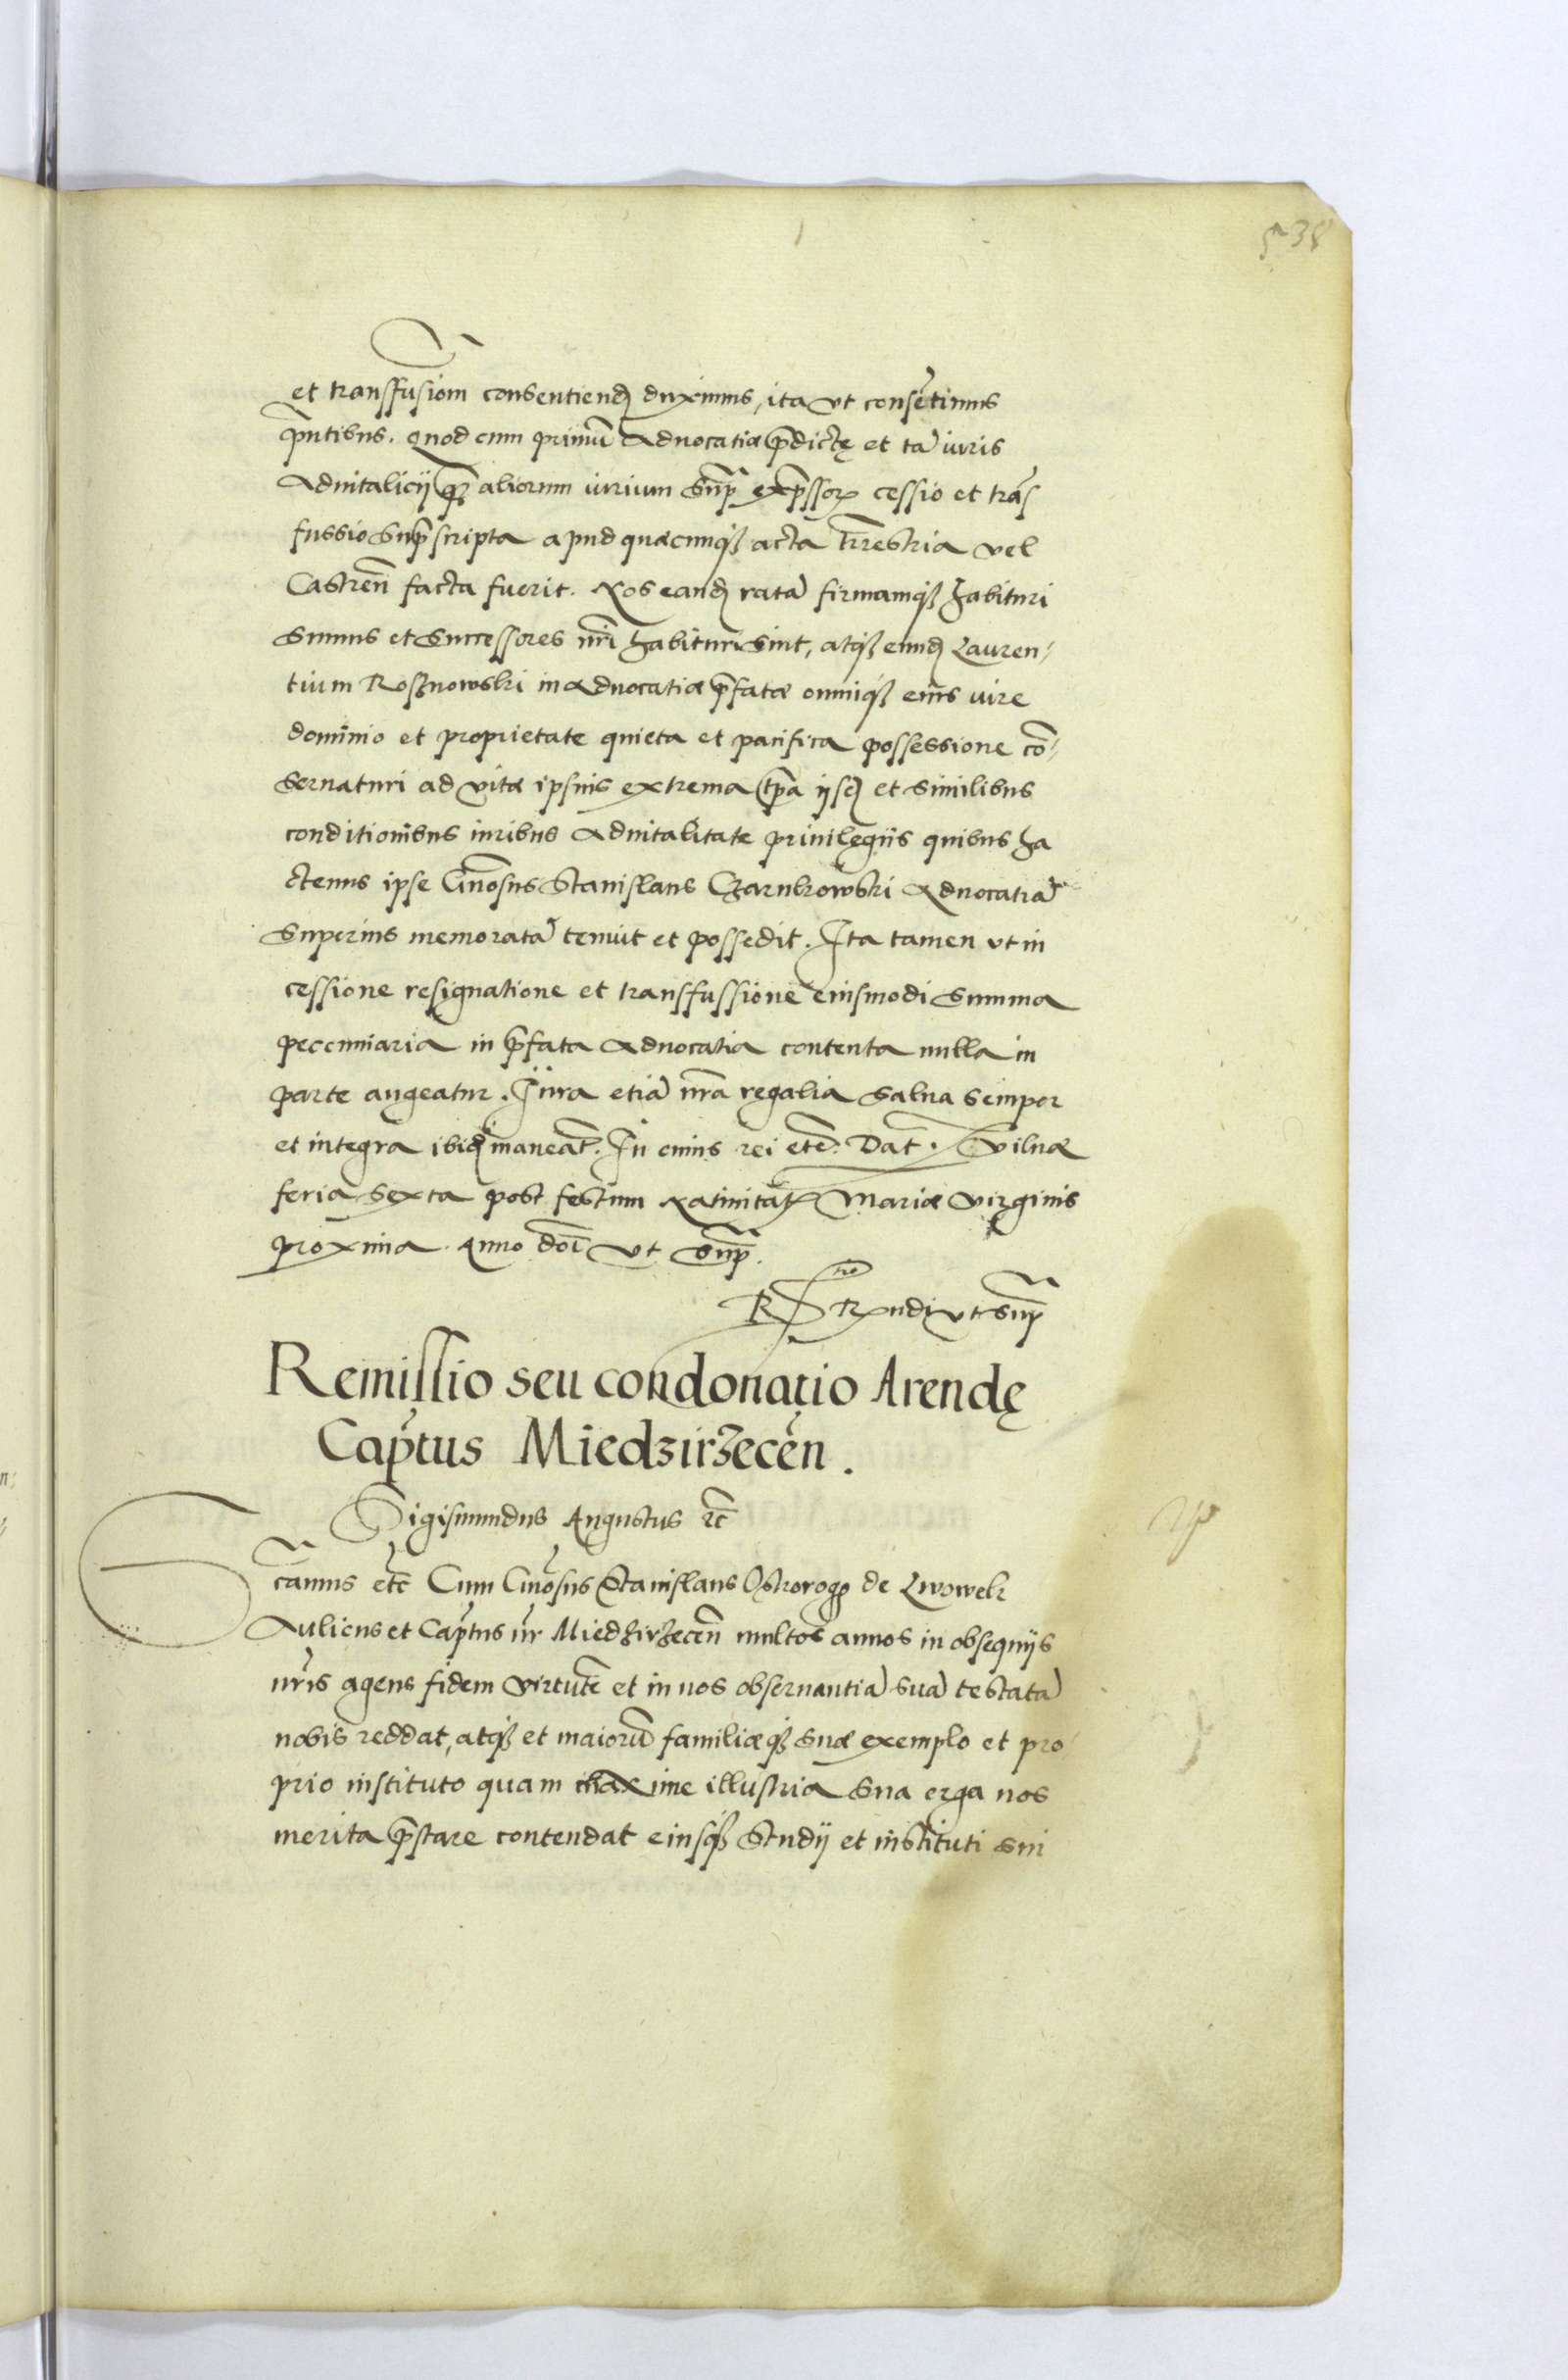 538
et transfusiom consentiend duximus, ita ut consētimus
pñtibus. Quod cum primū Advocatiæ p̄dictę et tā iuris
Advitalicij q̃ aliorum iurium Sup̃ exp̄ssor cessio et trās
fussio Sup̃scripta apud quæcunq̃ acta trrestria vel
Castreñ facta fuerit. Nos eand ratā firmamq̃ habituri
Sumus et Successores nr̃i habituri sint, atq̃ eund Lauren-
tium Rosznowski in Advocatiæ p̄fatæ omniq̃ eius iure
dominio et proprietate quieta et pacifica possessione cō-
servaturi ad vitæ ipsius extrema tp̃a ijsd et similibus
conditionibus iuribus Advitalitate privilegiis quibus ha
ctenus ipse Gñosus Stanislaus Czarnkowski Advocatiā
Superius memoratā tenuit et possedit. Ita tamen ut in
cessione resignatione et transfussione eiusmodi Summa
pecuniaria in p̄fata Advocatia contenta nulla in
parte augeatur. Iura etiā nr̃a regalia Salva semper
et integra ibid maneāt. In cuius rei etc̃. Dat̃. Vilnæ
feria Sexta post festum Nativitat Mariæ Virginis
proxima. Anno dōi ut Sup̃.
R ndi ut Sup̃
Remissio seu condonatio Arendę
Capt̃us Miedzirzeceñ.
Sigismundus Augustus etc̃
camus etc̃ Cum Gñosus Stanislaus Ostrorog de Lwowek
Aulicus et Capt̃us nr̃ Miedzirzeceñ multos annos in obsequijs
nr̃is agens fidem virtutē et in nos observantiā suā testatā
nobis reddat, atq̃ et maiorū familiæq̃ suæ exemplo et pro
prio instituto quam maxime illustria Sua erga nos
merita p̄stare contendat eiusq̃ Studij et instituti sui